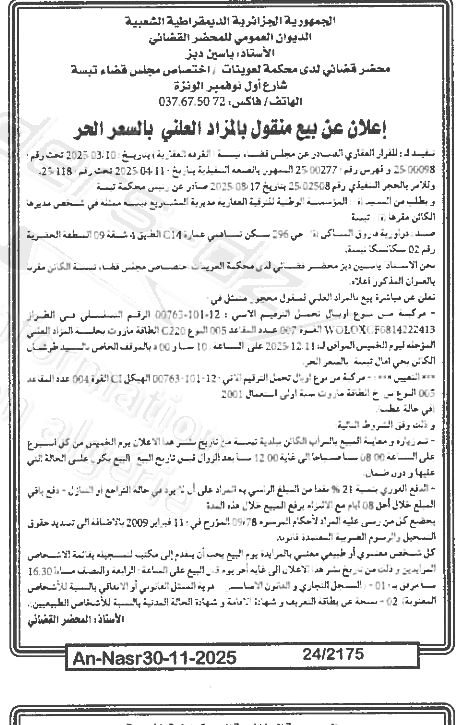 الجمهورية الجزائرية الديمقراطية الشعبية
الديوان العمومي للمحضر القضائي
الأستاذ: ياسين دبز
محضر قضائي لدى محكمة لعوينات / اختصاص مجلس قضاء تبسة
شارع أول نوفمبر الونزة
الهاتف/ فاكس: 037.67.50.72
إعلان عن بيع منقول بالمزاد العلني بالسعر الحر
للقرار العقاري الصادر عن مجلس قضاء تبسة الغرفة العقارية بتاريخ: 10-03-2025 تحت رقم:
25/00098 و فهرس رقم: 25/00277 الممهور بالصيغة التنفيذية بتاريخ: 10-04-2025 تحت رقم: 25/118
وللأمر بالحجز التنفيذي رقم 25/02508 بتاريخ 2025/08/17 صادر عن رئيس محكمة تبسة
و بطلب من المؤسسة الوطنية للترقية العقارية مديرية المشاريع بتبسة ممثلة في شخص مديرها
الكائن مقرها تبسة
ضد: فاروق الساكن حي 296 سكن تساهمي عمارة C14 الطابق 4 شقة 09 المنطقة الحضرية
رقم 02 سكانسكا تبسة
نحن الأستاذ ياسين دبز محضر قضائي لدى محكمة العوينات اختصاص مجلس قضاء تبسة الكائن مقرنا
بالعنوان المذكور أعلاه
نعلن عن مباشرة بيع بالمزاد العلني لمنقول محجوز متمثل في
- مركبة من نوع أوبال تحمل الترقيم الآتي: 12-101-00763 الرقم التسلسلي في الطراز
WOLOXCF0814222413 القوة 007 عدد المقاعد 005 النوع C220 الطاقة مازوت بجلسة المزاد العلني
المؤجلة ليوم الخميس الموافق لـ: 2025/12/11 على الساعة 10 سا و 00 د بالموقف الخاص بالسيد طرشان
الكائن بحي امال تبسة بالسعر الحر.
*** التعيين ***: - مركبة من نوع أوبال تحمل الترقيم الآتي: 12-101-00763 الهيكل CI القوة 004 عدد المقاعد
005 النوع س خ الطاقة مازوت سنة أولى استعمال 2001
(في حالة عطب)
و ذلك وفق الشروط التالية
- تتم زيارة و معاينة المبيع بالمرآب الكائن ببلدية تبسة من تاريخ نشر هذا الاعلان يوم الخميس من كل أسبوع
على الساعة 08.00 سا صباحا الى غاية 12.00 سا بعد الزوال قبل تاريخ البيع البيع يكون على الحالة التي
عليها و دون ضمان.
- الدفع الفوري بنسبة 21 % نقدا من المبلغ الراسي به المزاد على أن لا يرد في حالة التراجع أو التنازل - دفع باقي
المبلغ خلال أجل 08 أيام مع الالتزام برفع المبيع خلال هذه المدة
يخضع كل من رسى عليه المزاد لأحكام المرسوم 09/78 المؤرخ في 11 فبراير 2009 بالاضافة الى تسديد حقوق
التسجيل والرسوم الضريبية المعتمدة قانونا.
كل شخص معنوي أو طبيعي معني بالمزايدة يوم البيع يجب أن يتقدم إلى مكتبنا لتسجيله بقائمة الأشخاص
المزايدين و ذلك من تاريخ نشر هذا الاعلان الى غاية آخر يوم قبل البيع على الساعة: الرابعة والنصف مساءا 16.30
سا مرفق بـ: 01 - السجل التجاري و القانون الأساسي هوية الممثل القانوني أو الاتفاقي بالنسبة للأشخاص
المعنوية، 02 - نسخة من بطاقة التعريف و شهادة الاقامة و شهادة الحالة المدنية بالنسبة للأشخاص الطبيعيين.
الأستاذ: المحضر القضائي
An-Nasr30-11-2025
24/2175